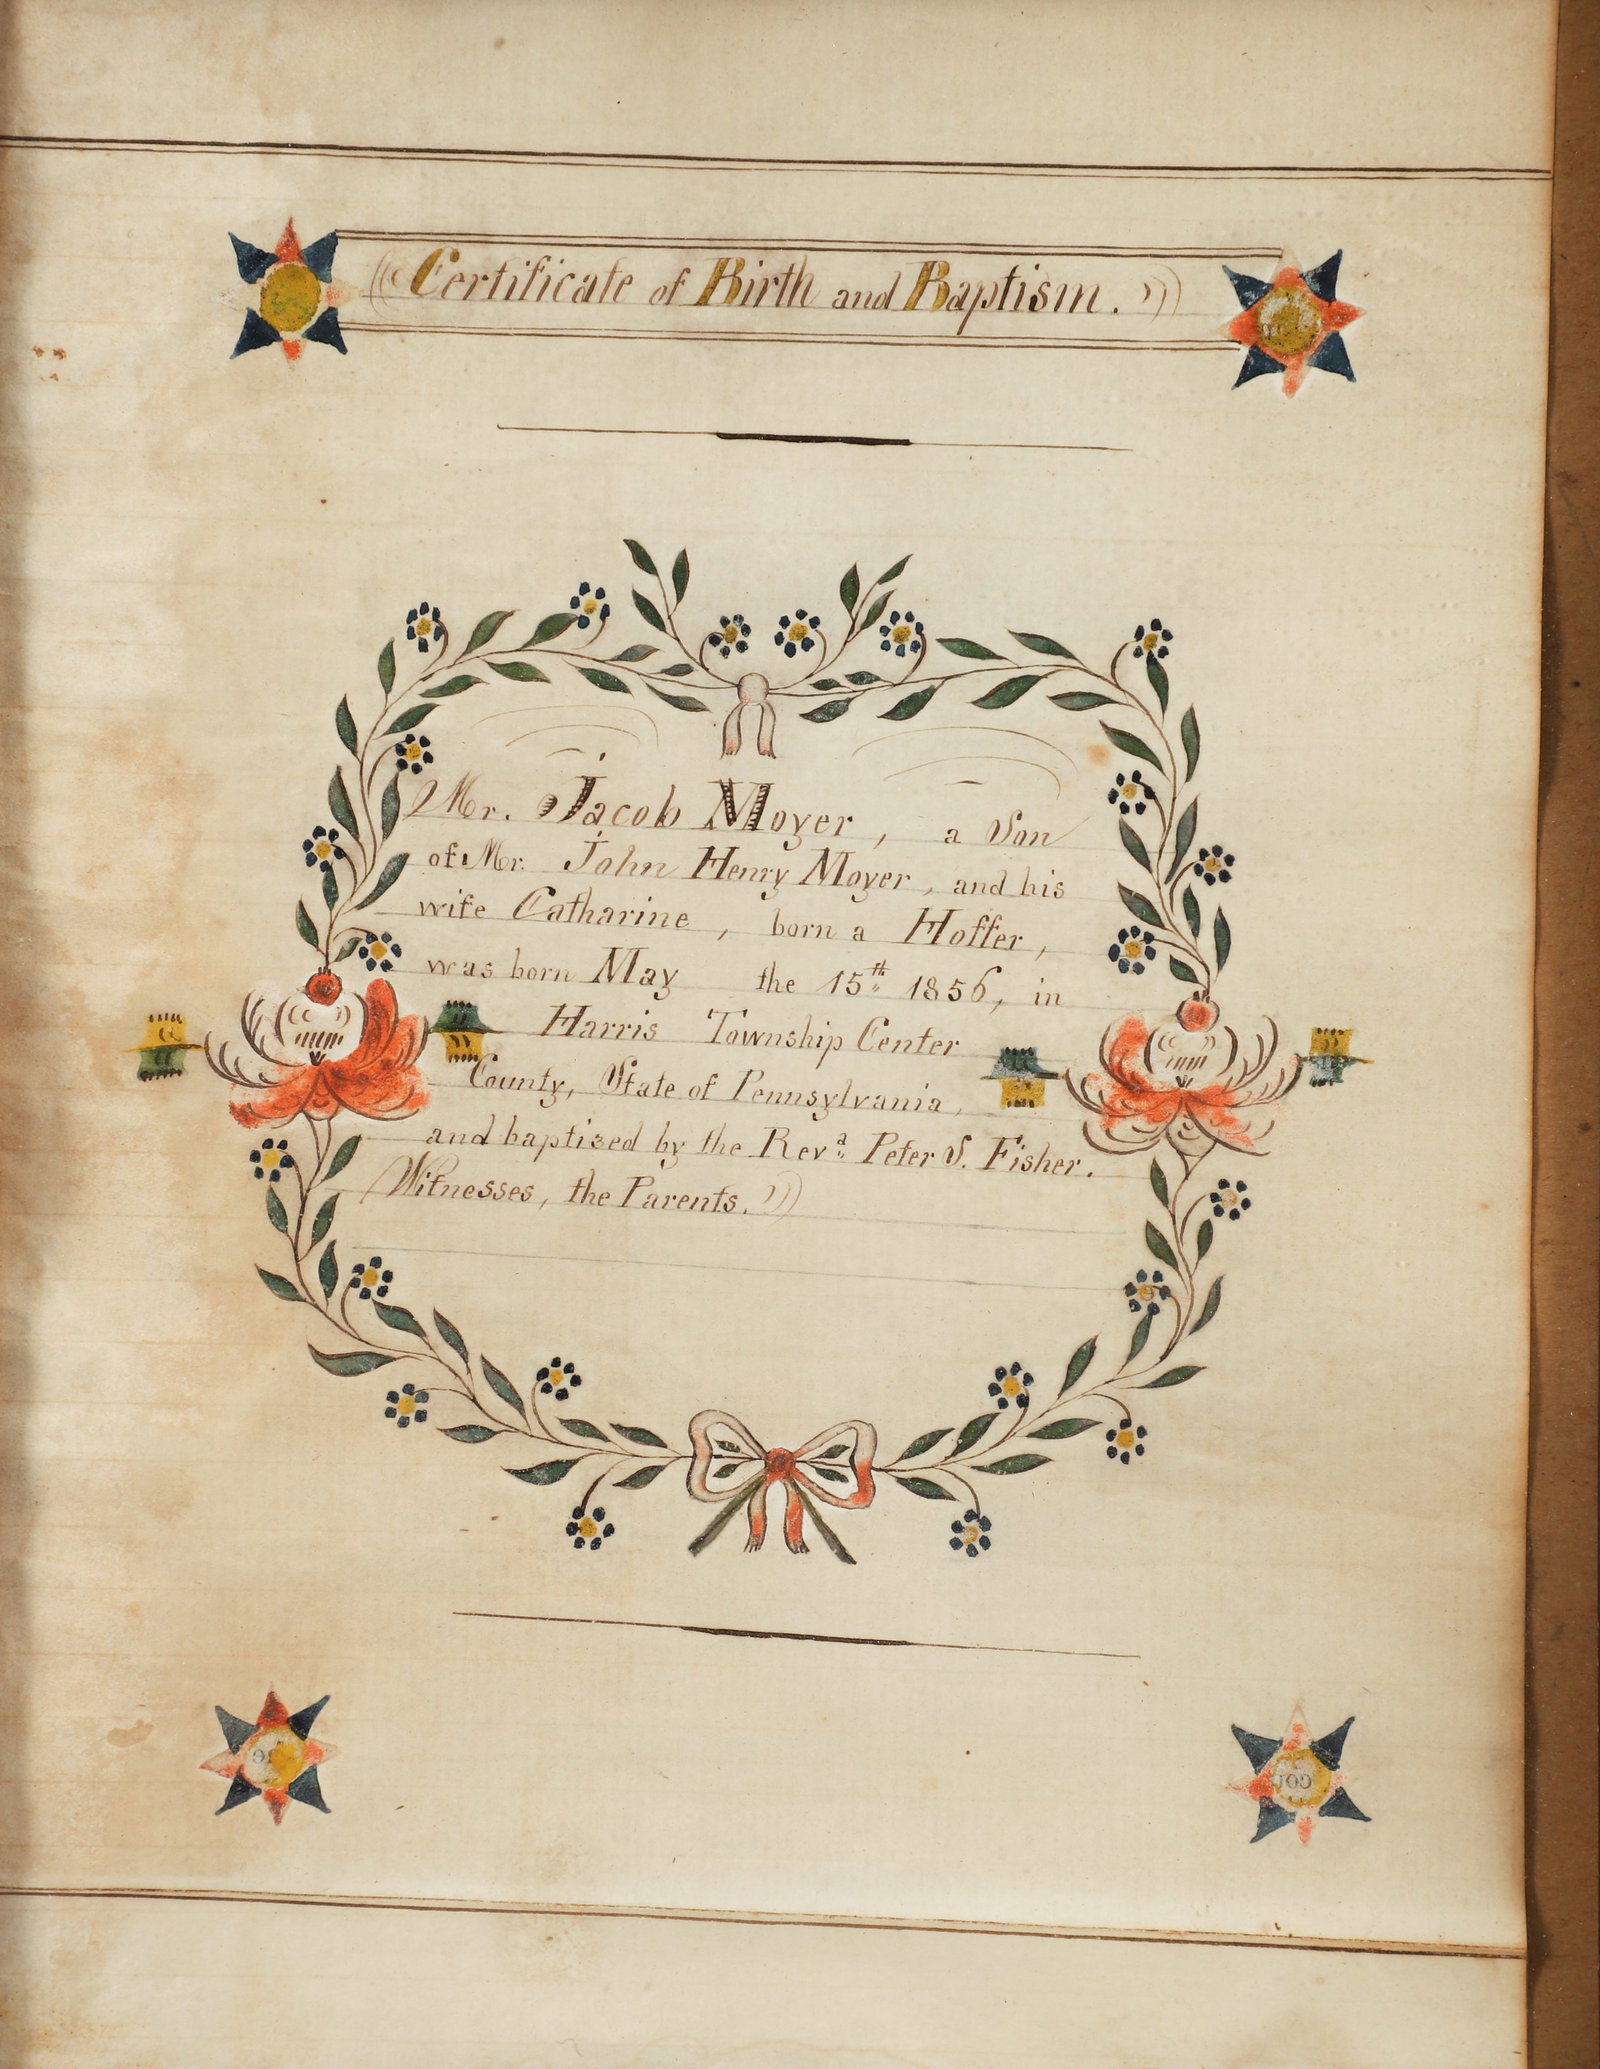 Certificate of Birth and Baptism.
Mr. Jacob Moyer, a Son
of Mr. John Henry Moyer, and his
wife Catharine, born a Hoffer,
was born May the 15th 1856, in
Harris Township Center
County, State of Pennsylvania,
and baptized by the Revd. Peter S. Fisher.
Witnesses, the Parents.